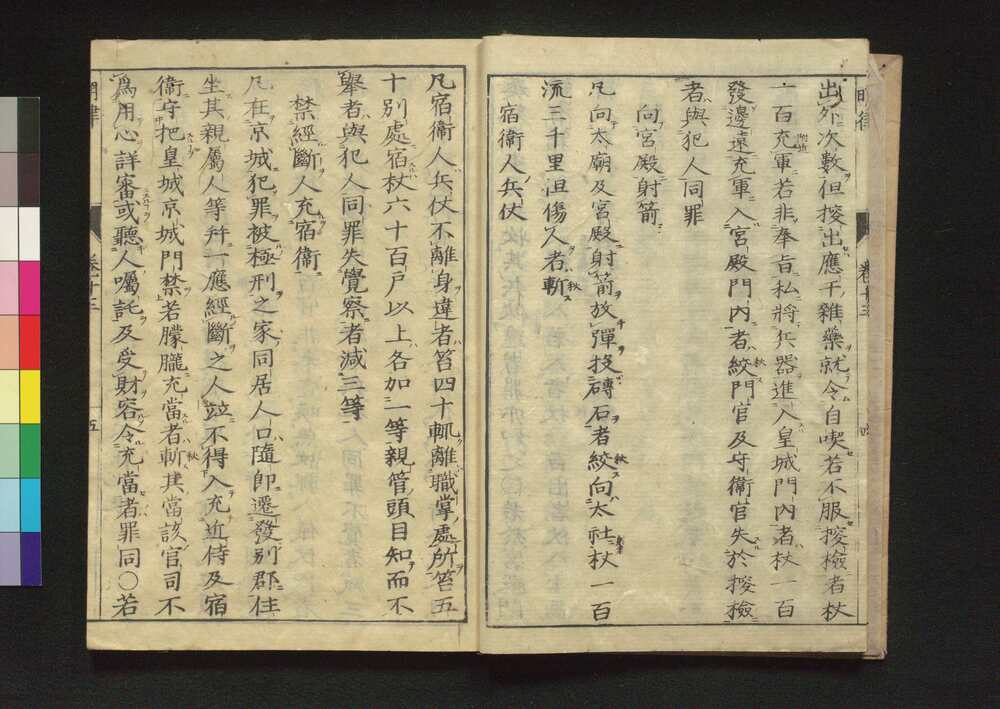 出外次數但搜出應干雜藥就令自喫若不服搜檢者杖
一百充軍若非奉旨私將兵器進入皇城門內者杖一百
發邊遠充軍入宮殿門內者絞門官及守衞官失於搜檢
者與犯人同罪
向宮殿射箭
凡向太廟及宮殿射箭放彈投磚石者絞向太社杖一百
流三千里但傷人者斬
宿衞人兵仗
凡宿衞人兵仗不離身違者笞四十輒離職掌處所笞五
十別處宿杖六十百戶以上各加一等親管頭目知而不
舉者與犯人同罪失覺察者減三等
禁經斷人充宿衞
凡在京城犯罪被極刑之家同居人口隨即遷發別郡住
坐其親屬人等幷一應經斷之人竝不得入充近侍及宿
衞守把皇城京城門禁若朦朧充當者斬其當該官司不
爲用心詳審或聽人囑託及受財容令充當者罪同〇若
明律
卷十三
五